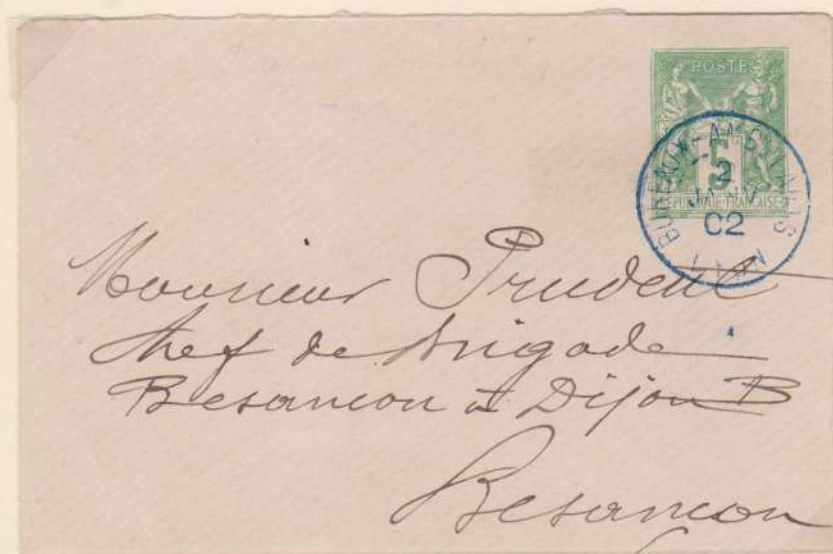 POSTE
5
REPUBLIQUE FRANCAISE
BUREAUX AMBULANTS
2
JANV
02
Monsieur Prudent
chef de brigade
Besancon à Dijon B
Besancon